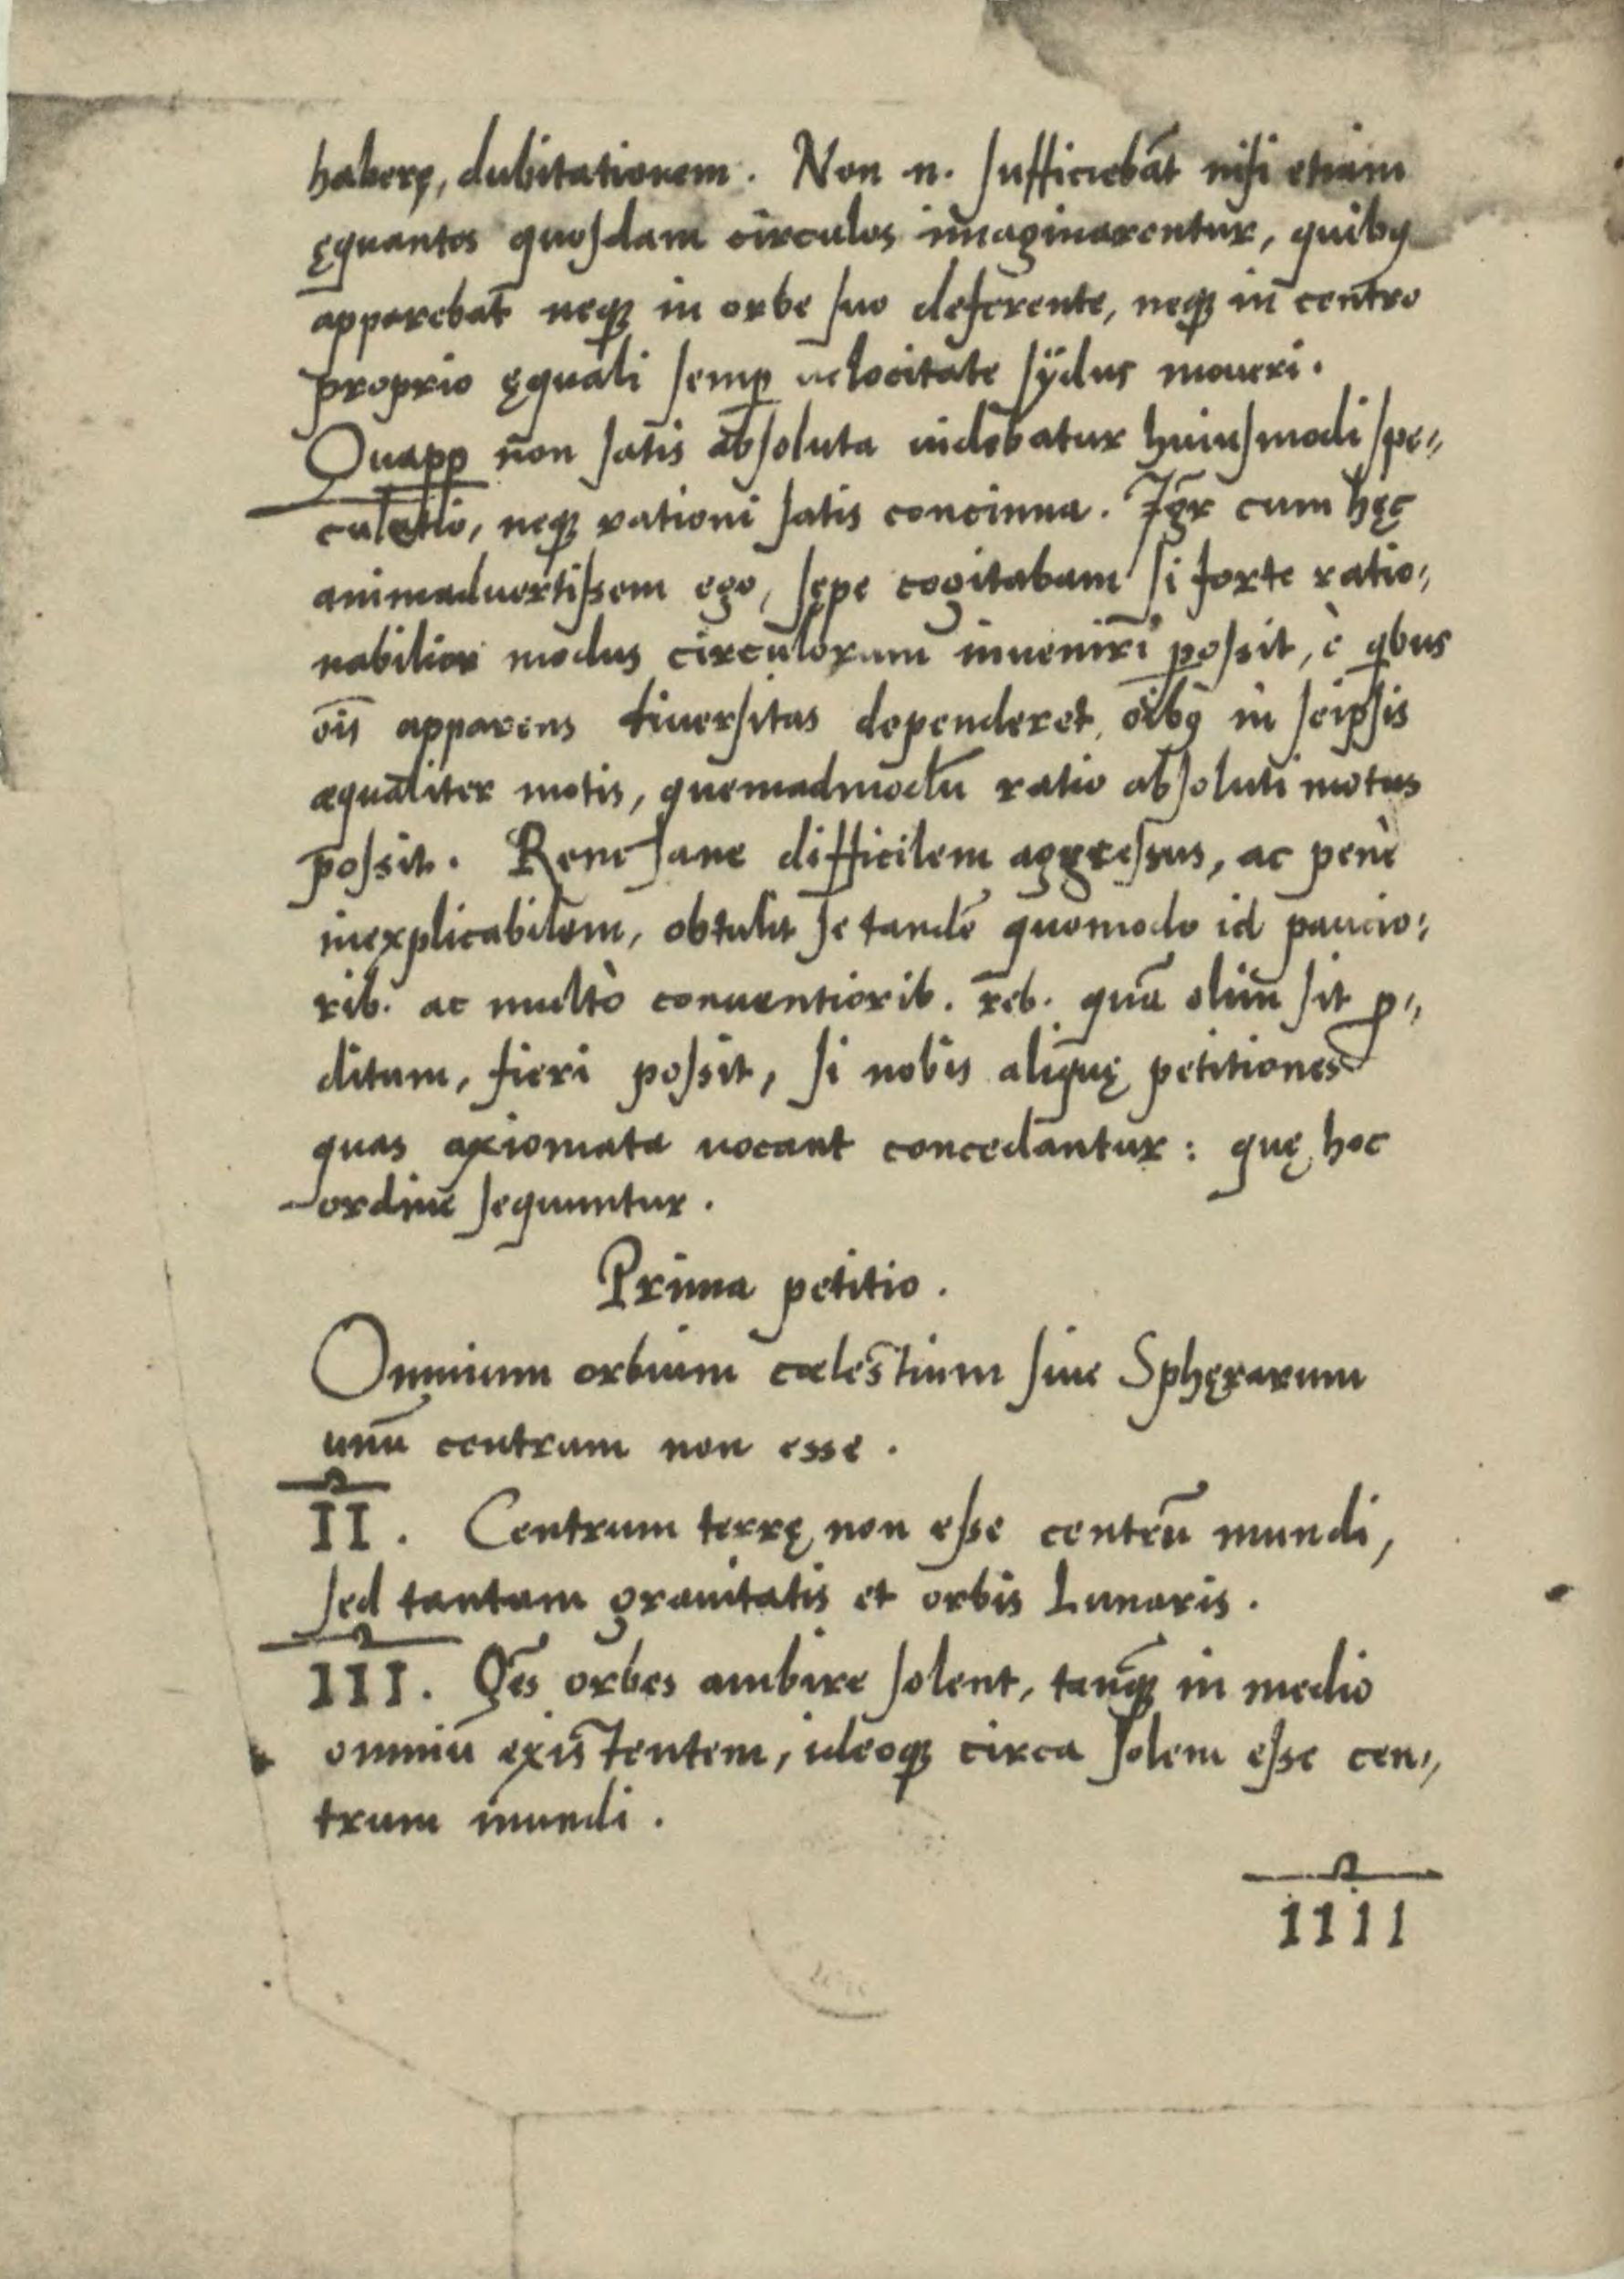 haberę, dubitationem. Non n. sufficiebāt nisi etiam
ęquantes quosdam circulos imaginarentur, quibꝯ
apparebat neqꝫ in orbe suo deferente, neqꝫ in centro
proprio ęquali semꝑ uelocitate sÿdus moueri.
Quaꝓꝑ non satis absoluta uidebatur huiusmodi spe⸗
culatio, neqꝫ rationi satis concinna. Igr̄ cum hęc
animaduertissem ego, sępe cogitabam si forte ratio⸗
nabilior modus circulorum inueniri possit, è qbus
oīs apparens diuersitas dependeret, oībꝯ in seipsis
æqualiter motis, quemadmodū ratio absoluti motus
possit. Rem sane difficilem aggressus, ac penè
inexplicabilem, obtulit se tandē quomodo id paucio⸗
rib. ac multò conuentiorib. reb. quā olim sit ꝓ⸗
ditum, fieri possit, si nobis aliquę petitiones
quas axiomata uocant concedantur: quę hoc
ordine sequuntur.
Prima petitio.
Omnium orbium cœlestium siue Sphęrarum
unū centrum non esse.
II. Centrum terrę non esse centrū mundi,
sed tantum grauitatis et orbis Lunaris.
III. Oēs orbes ambire solent, tanqꝫ in medio
omniū existentem, ideoqꝫ circa solem esse cen⸗
trum mundi.
IIII